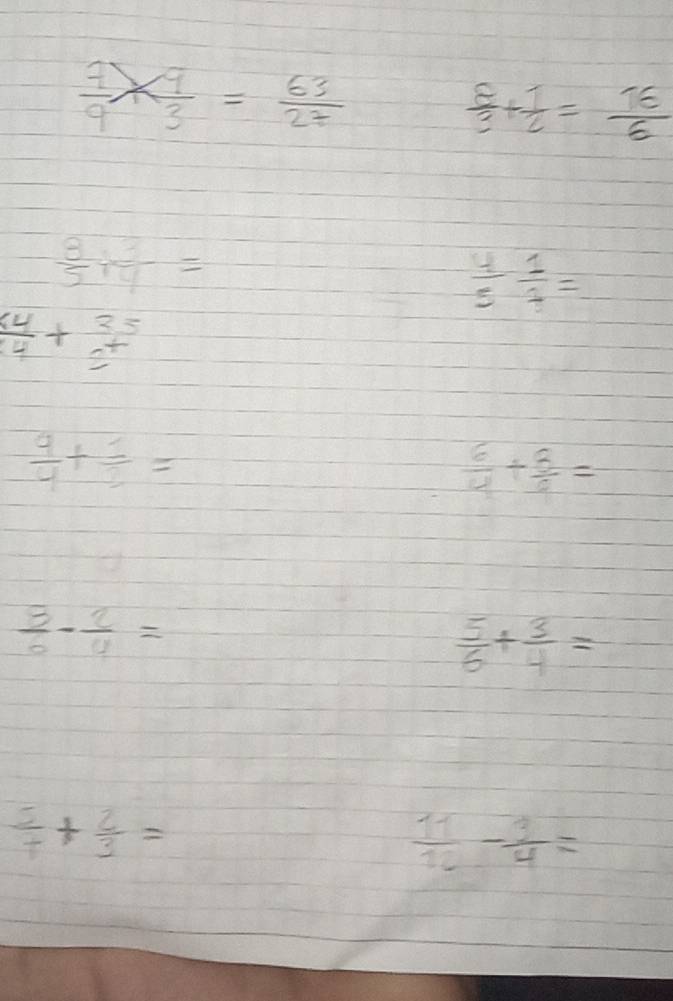 7/9 + 9/3 = 63/27 8/3 + 1/2 = 16/6
8/5 + /4 = 4/5 1/7 =
4/4 + 35
9/4 + 1/ = 6/4 + 8/ =
8/6 - 2/4 = 5/6 + 3/4 =
5/7 + 2/3 = 11/12 - 3/4 =